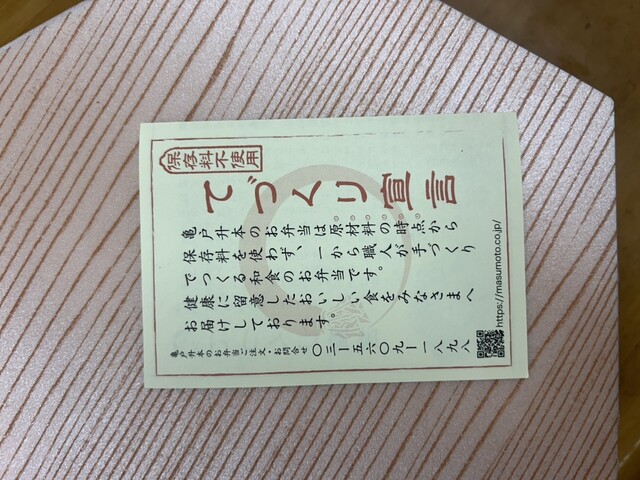 保存料不使用
てづくり宣言
亀戸升本のお弁当は原材料の時点から
保存料を使わず、一から職人が手づくり
でつくる和食のお弁当です。
健康に留意したおいしい食をみなさまへ
お届けしております。
亀戸升本のお弁当ご注文・お問合せ 〇三ー五六〇九ー一八九八
https://masumoto.co.jp/